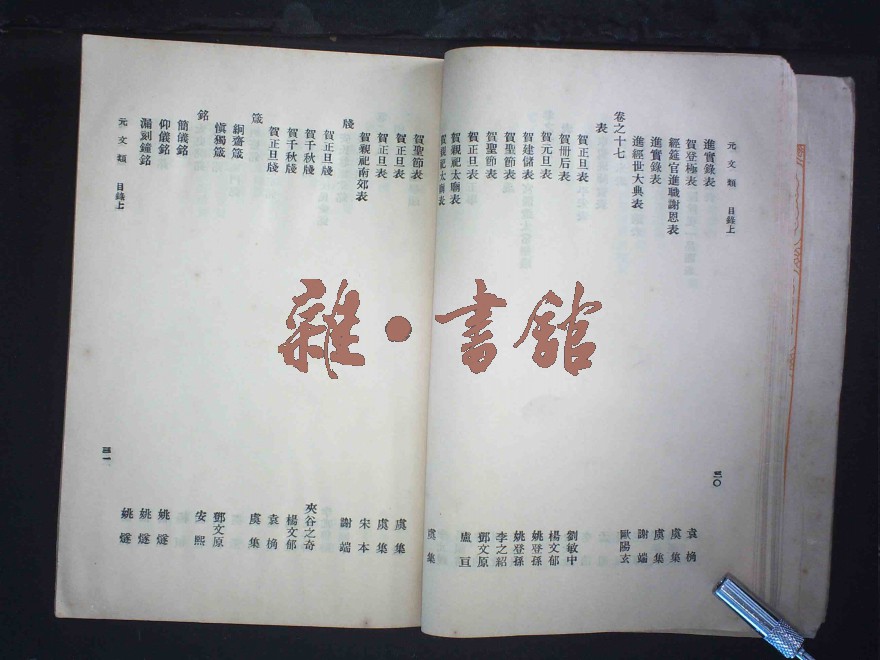 元文類 目錄上 四〇
進實錄表 袁桷
賀登極表 虞集
經筵官進職謝恩表 虞集
進實錄表 謝端
進經世大典表 歐陽玄
卷之十七
表
賀正旦表 劉敏中
賀冊后表 楊文郁
賀元旦表 姚登孫
賀建儲表 姚登孫
賀聖節表 李之紹
賀聖節表 鄧文原
賀正旦表 盧亘
賀親祀太廟表
賀親祀太廟表 虞集
賀聖節表 虞集
賀正旦表 虞集
賀正旦表 宋本
賀親祀南郊表 謝端
牋
賀正旦牋 夾谷之奇
賀千秋牋 楊文郁
賀千秋牋 袁桷
賀正旦牋 虞集
箴
銅齋箴 鄧文原
愼獨箴 安熙
銘
簡儀銘 姚燧
仰儀銘 姚燧
漏刻鐘銘 姚燧
元文類 目錄上 四一
雜·書館